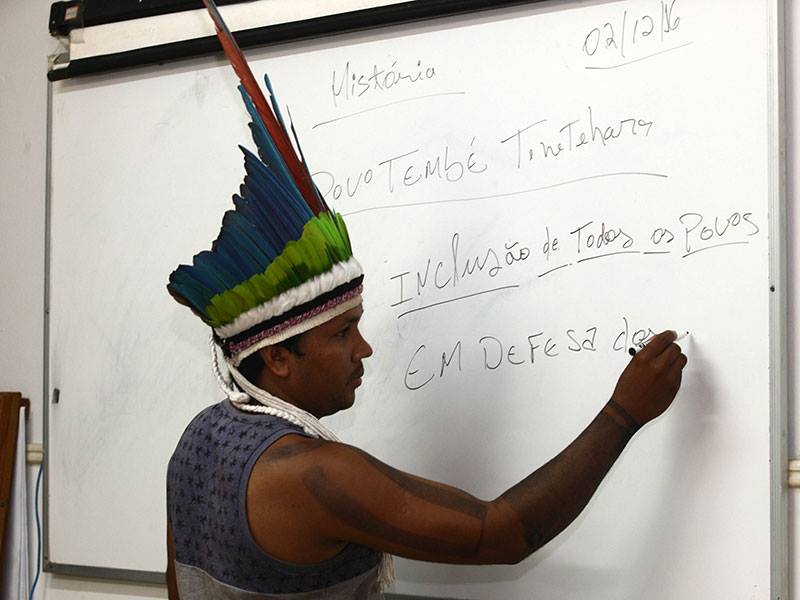 História 02/12/16
Povo TEMBÉ Tenetehara
INclusão de Todos os Povos
EM DEFESA dos